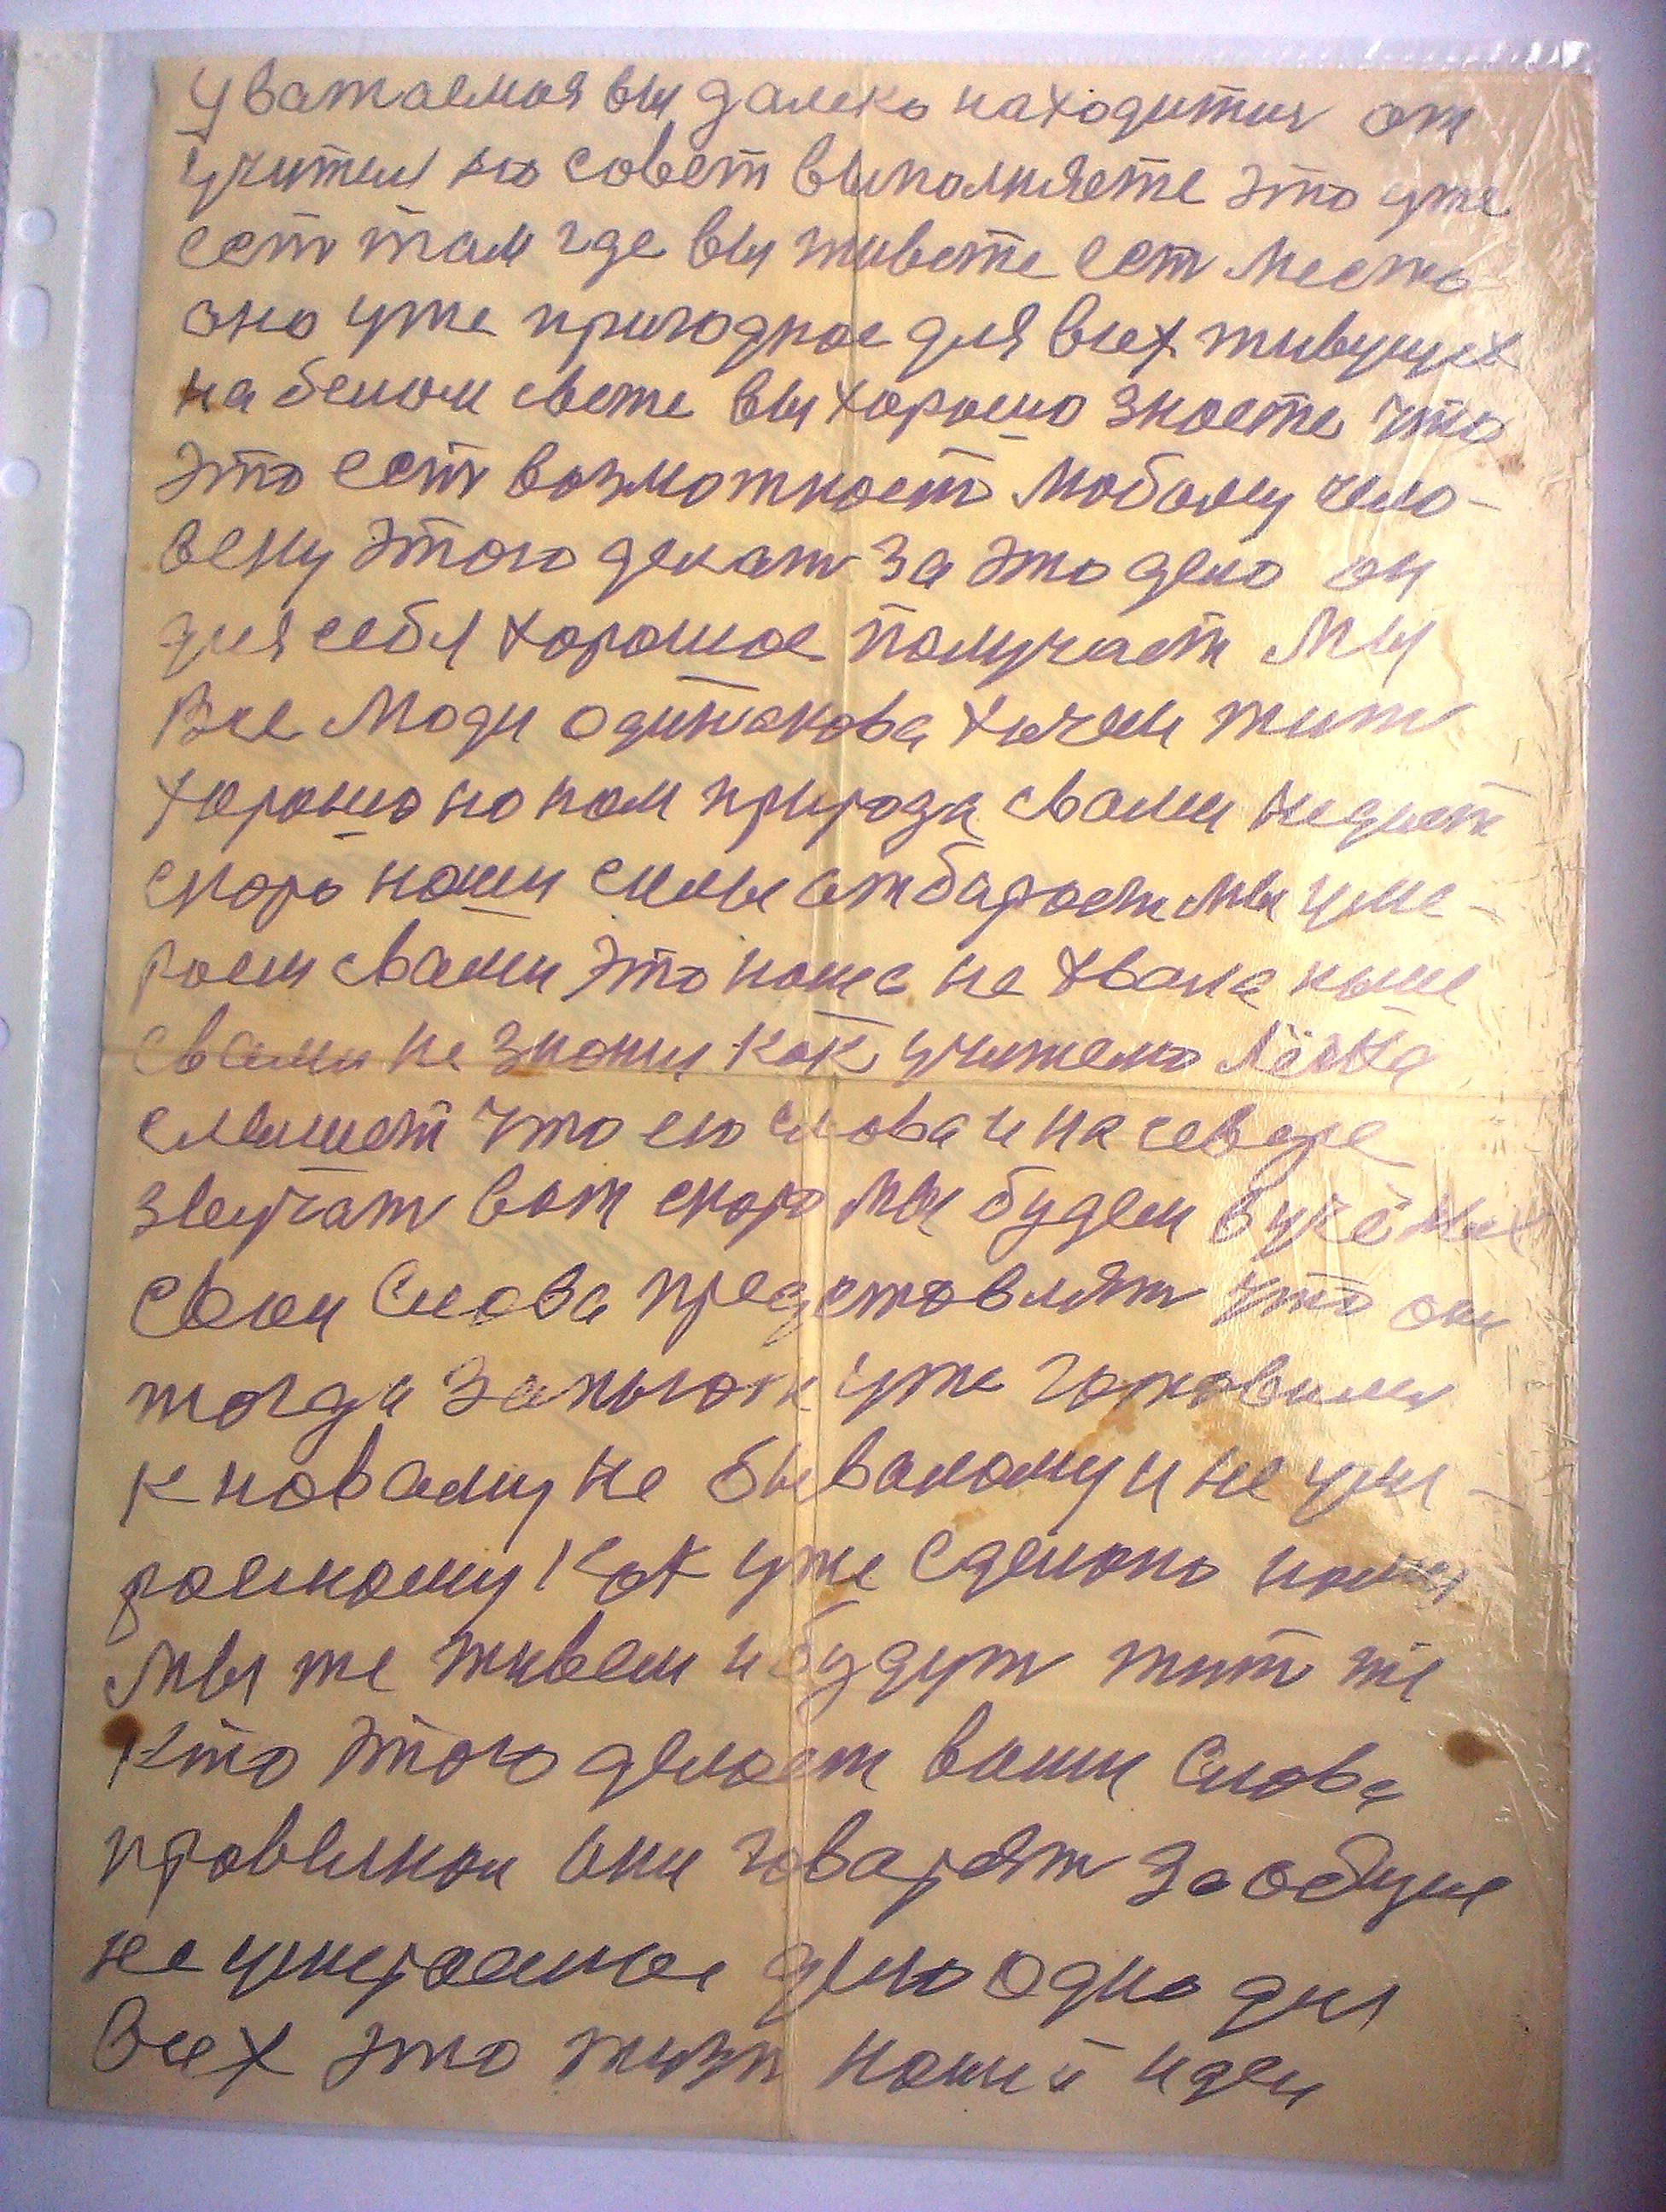 Уважаемая вы далеко находитись от
учителя но совет выполняете это уже
ест там где вы живете ест место
оно уже пригодное для всех живущих
на белом свете вы хорошо знаете что
это ест возможност любому чело-
веку этого делат за это дело он
для себя хорошое получает Мы
Все Люди одинакова хочем жит
хорошо но нам природа свами недает
скоро наши силы мы уми-
раем свами это наша не хвала
свами не знали как учителю
слышет что его слова и на севере
звучат вот скоро мы будем в учёных
свои Слова представлят что они
тогда запоют уже готовилис
к новаму не бывалому и не уми-
раемому Как уже сделано нами
мы же живем и будут жит те
кто этого делает ваши Слова
правельнои они говарят за общие
не умераемое дело одно для
Всех это жизн нашей идеи